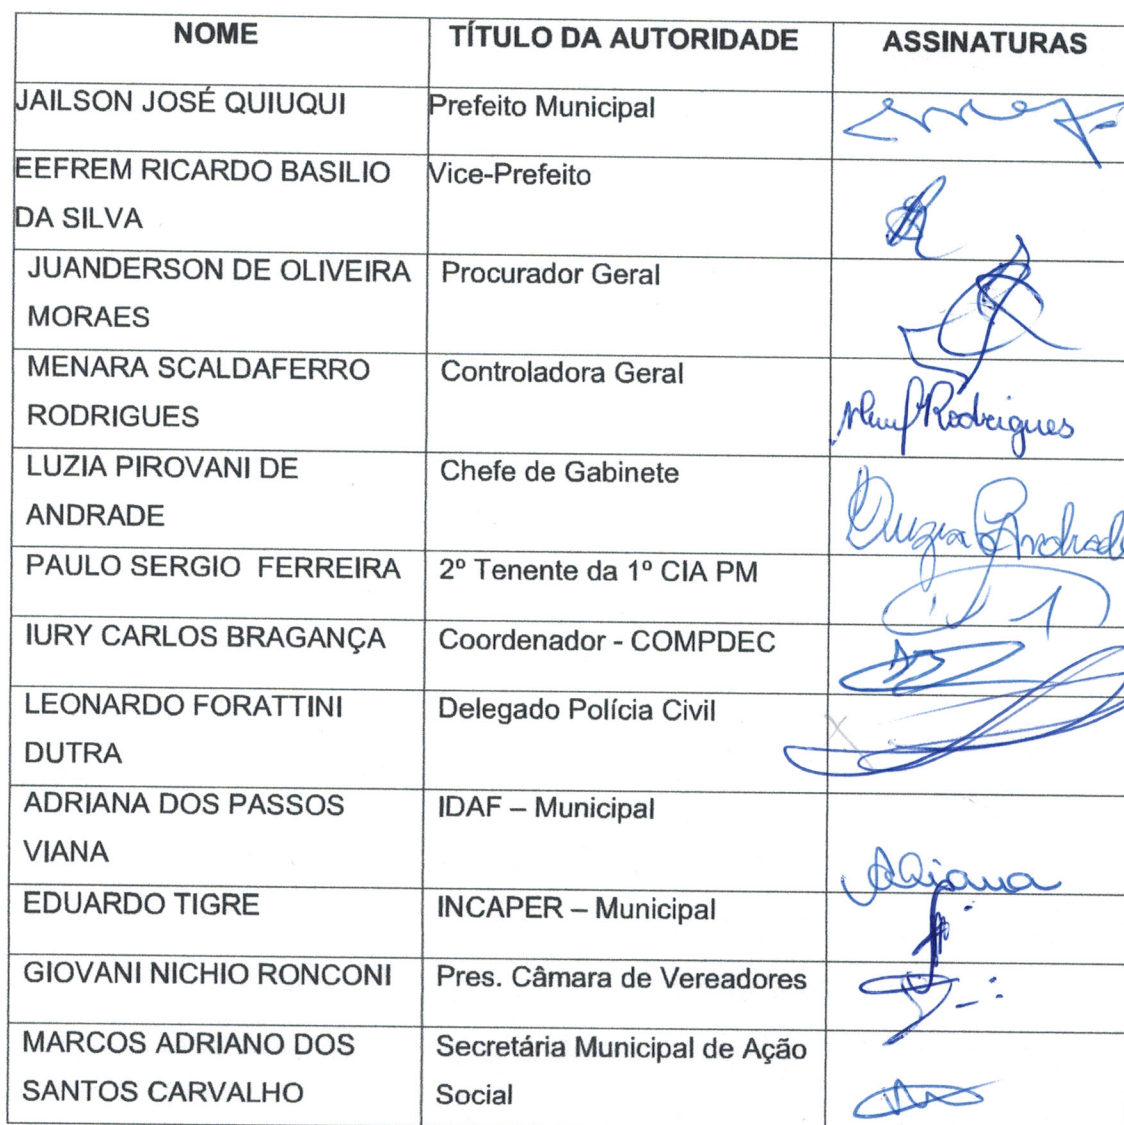 NOME TÍTULO DA AUTORIDADE ASSINATURAS
JAILSON JOSÉ QUIUQUI Prefeito Municipal
EEFREM RICARDO BASILIO Vice-Prefeito
DA SILVA
JUANDERSON DE OLIVEIRA Procurador Geral
MORAES
MENARA SCALDAFERRO Controladora Geral
RODRIGUES Rodrigues
LUZIA PIROVANI DE Chefe de Gabinete
ANDRADE Luzia Andrade
PAULO SERGIO FERREIRA 2º Tenente da 1º CIA PM
IURY CARLOS BRAGANÇA Coordenador - COMPDEC
LEONARDO FORATTINI Delegado Polícia Civil
DUTRA
ADRIANA DOS PASSOS IDAF – Municipal
VIANA
EDUARDO TIGRE INCAPER – Municipal
GIOVANI NICHIO RONCONI Pres. Câmara de Vereadores
MARCOS ADRIANO DOS Secretária Municipal de Ação
SANTOS CARVALHO Social